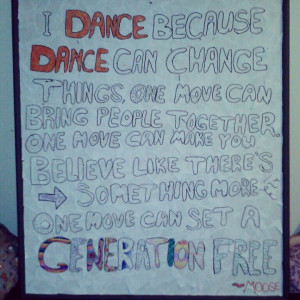 I DANCE BECAUSE
DANCE CAN CHANGE
THINGS, ONE MOVE CAN
BRING PEOPLE TOGETHER,
ONE MOVE CAN MAKE YOU
BELIEVE LIKE THERE'S
→ SOMETHING MORE
ONE MOVE CAN SET A
GENERATION FREE
~MOOSE